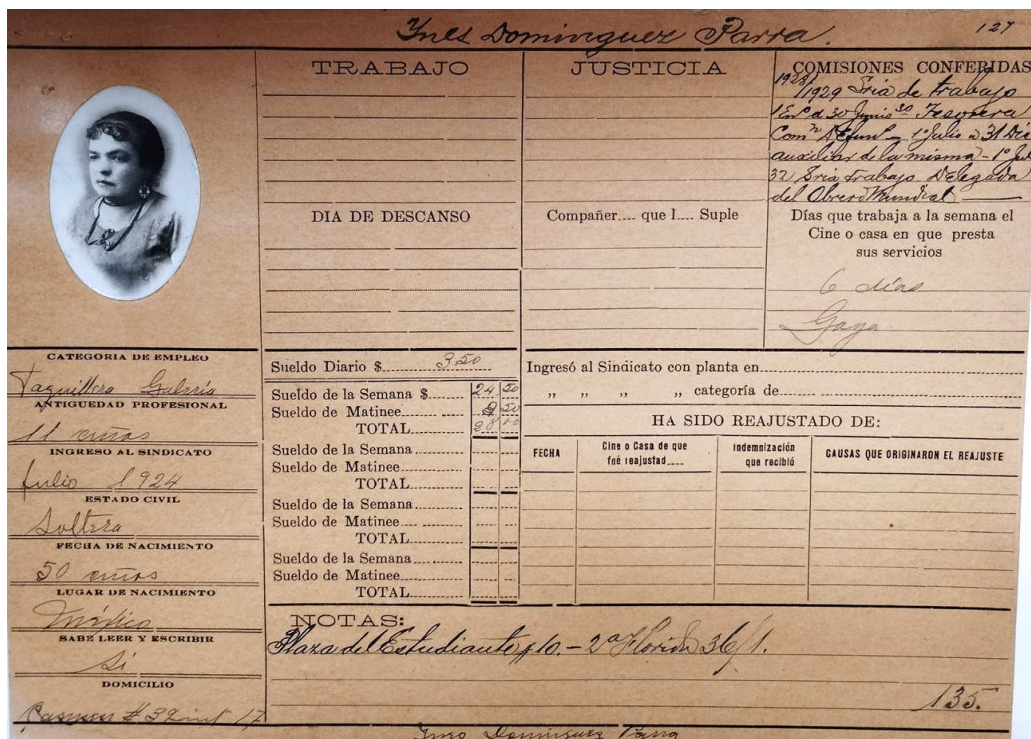 Ynes Dominguez Parra.
127
TRABAJO
JUSTICIA
COMISIONES CONFERIDAS
1928/
1929 Sria de trabajo
1º En.º a 30 Junio 30 Tesorera
Com.n Defunº - 1º Julio a 31 Dic
auxiliar de la misma - 1º Jul
32 Sria trabajo Delegada
del Obrero Mundial
DIA DE DESCANSO
Compañer.... que l.... Suple
Días que trabaja a la semana el
Cine o casa en que presta
sus servicios
6 días
Goya
CATEGORIA DE EMPLEO
Taquillera Galería
ANTIGUEDAD PROFESIONAL
11 años
INGRESO AL SINDICATO
Julio 1924
ESTADO CIVIL
Soltera
FECHA DE NACIMIENTO
50 años
LUGAR DE NACIMIENTO
México
SABE LEER Y ESCRIBIR
Si
DOMICILIO
# 39 int 17
Sueldo Diario $ 3 50
Sueldo de la Semana $ 24 50
Sueldo de Matinee 50
TOTAL
Sueldo de la Semana
Sueldo de Matinee
TOTAL
Sueldo de la Semana
Sueldo de Matinee
TOTAL
Sueldo de la Semana
Sueldo de Matinee
TOTAL
Ingresó al Sindicato con planta en
„ „ „ „ categoría de
HA SIDO REAJUSTADO DE:
FECHA
Cine o Casa de que fué reajustad....
Indemnización que recibió
CAUSAS QUE ORIGINARON EL REAJUSTE
NOTAS:
Plaza del Estudiante #10. - 2ª Florida 36/1.
135.
Ines Dominguez Parra